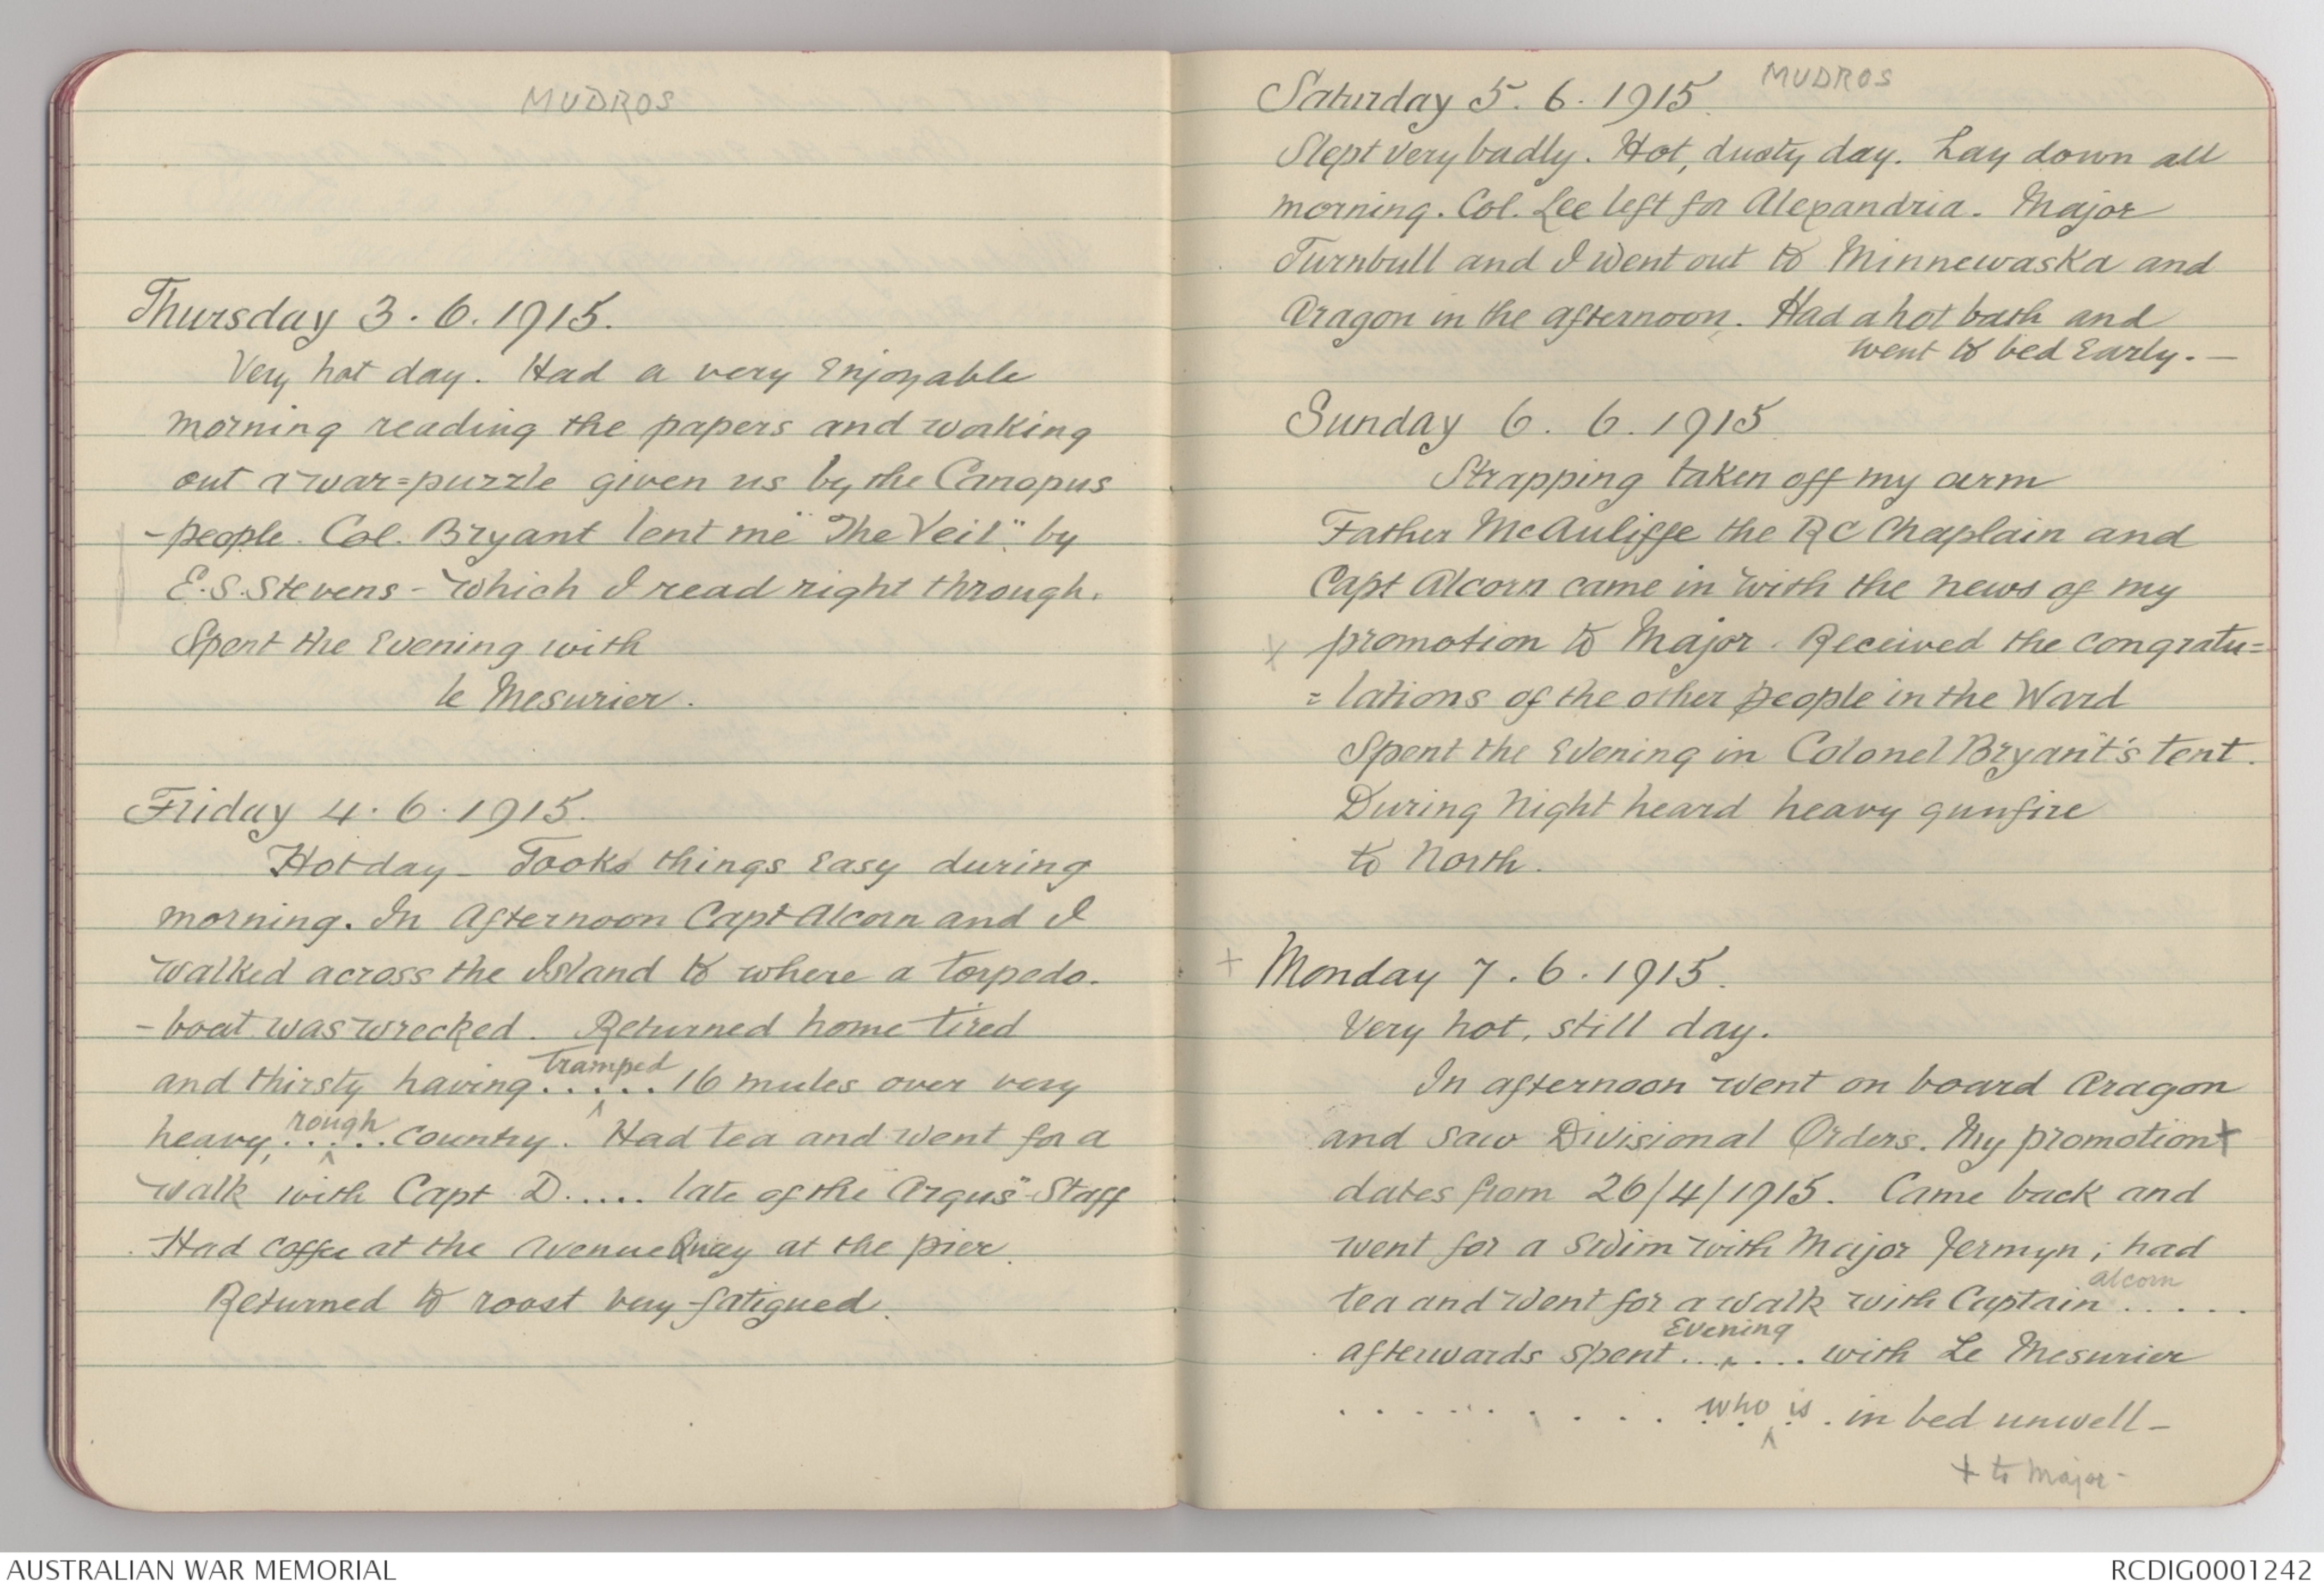 MUDROS
Thursday 3. 6. 1915.
Very hot day. Had a very Enjoyable
morning reading the papers and working
out a war=puzzle given us by the Canopus
-people. Col. Bryant lent me "The Veil" by
E.S. Stevens - which I read right through.
Spent the Evening with
le Mesurier.
Friday 4. 6. 1915.
Hot day - Tooks things Easy during
morning. In Afternoon Capt Alcorn and I
walked across the Island to where a torpedo.
-boat was wrecked. Returned home tired
and thirsty having ..... tramped 16 mules over very
heavy, ..... rough country. Had tea and went for a
walk with Capt D..... late of the "Argus" Staff
Had coffee at the Avenue Quay at the pier.
Returned to roost very fatigued.
MUDROS
Saturday 5. 6. 1915.
Slept very badly. Hot, dusty day. Lay down all
morning. Col. Lee left for Alexandria. Major
Turnbull and I went out to Minnewaska and
Aragon in the afternoon. Had a hot bath and
went to bed Early. -
Sunday 6. 6. 1915
Strapping taken off my arm
Father McAuliffe the RC Chaplain and
Capt Alcorn came in with the news of my
x promotion to Major. Received the congratu=
=lations of the other people in the Ward
Spent the Evening in Colonel Bryant's tent.
During Night heard heavy gunfire
to North.
+ Monday 7. 6. 1915.
Very hot, still day.
In afternoon went on board Aragon
and saw Divisional Orders. My promotion +
dates from 26/4/1915. Came back and
went for a swim with Major Jermyn; had
tea and went for a walk with Captain Alcorn .....
afterwards spent ..... Evening with Le Mesurier
. . . . . . . . . who is . in bed unwell -
+ to Major -
AUSTRALIAN WAR MEMORIAL
RCDIG0001242